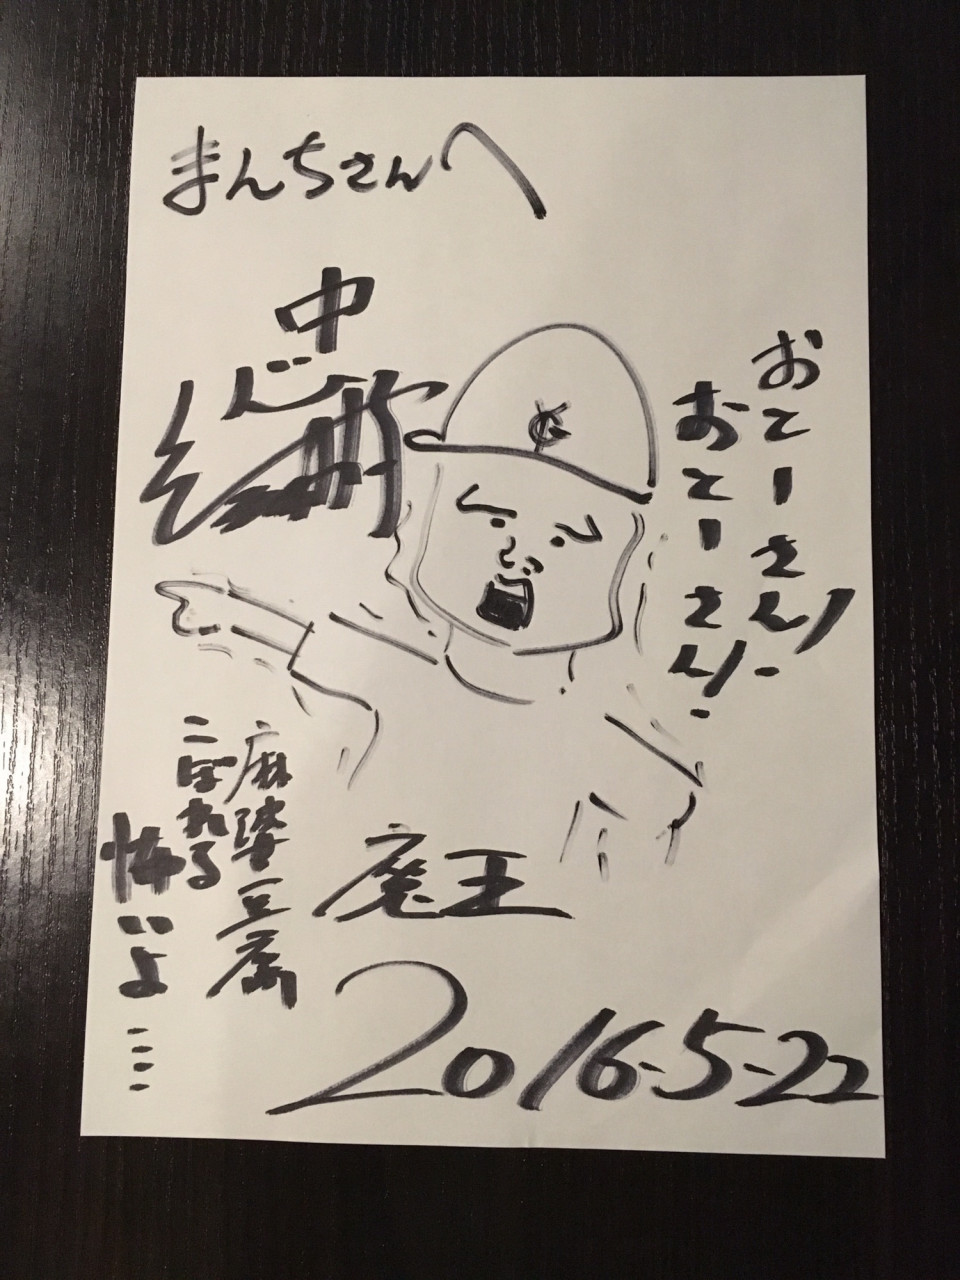 まんちさんへ
おとーさん!
おとーさん!
中
魔王
麻婆豆腐
こぼれる
怖いよ……
2016-5-22